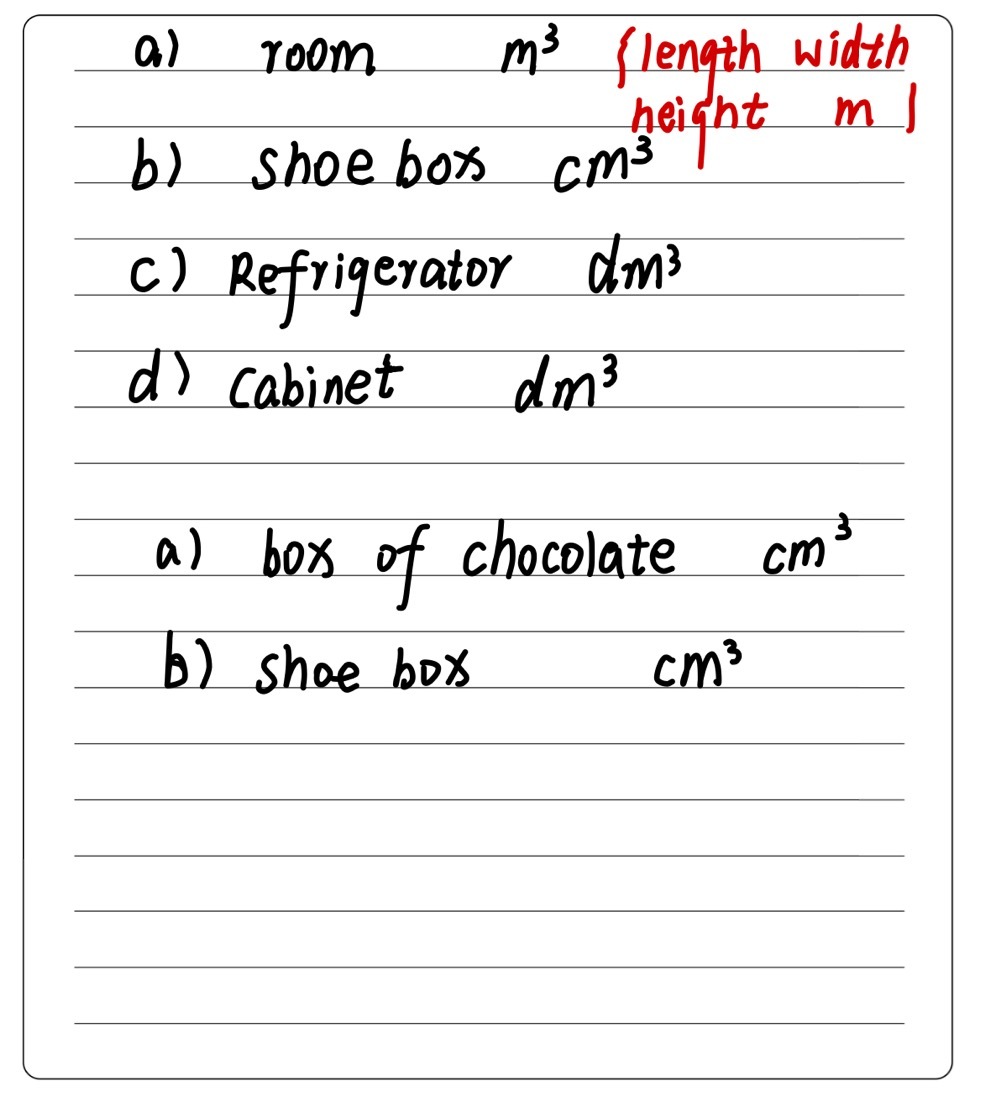 a) room m³ {length width
height m}
b) shoe box cm³
c) Refrigerator dm³
d) cabinet dm³
a) box of chocolate cm³
b) shoe box cm³